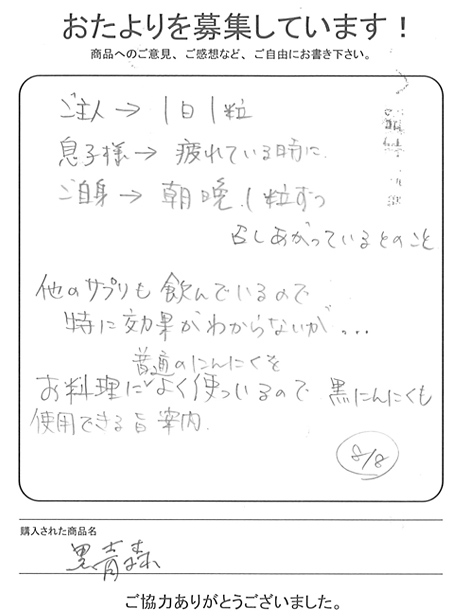 おたよりを募集しています！
商品へのご意見、ご感想など、ご自由にお書き下さい。
ご主人→1日1粒
息子様→疲れている時に.
ご自身→朝晩.1粒ずつ
召しあがっているとのこと
他のサプリも飲んでいるので
特に効果がわからないが...
普通のにんにくを
お料理によく使っているので黒にんにくも
使用できる旨案内.
8/8
購入された商品名
黒青森
ご協力ありがとうございました。